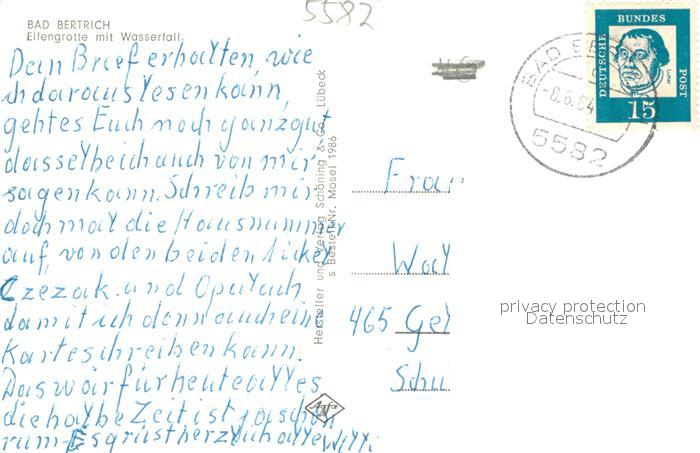 5582
BAD BERTRICH
Elfengrotte mit Wasserfall
Dein Brief erhalten, wie
ich daraus lesen kann,
gehtes Euch noch ganz gut
dasselbe ich auch von mir
sagen kann. Schreib mir
doch mal die Hausnummer
auf, von den beiden Nickel
Czezak. und Opalach
damit ich dann auch ein
Karte schreiben kann.
Das wär für heute alles
die halbe Zeit ist ja schon
rum. Es grüst herzlich alle Willi
Hersteller und Verlag Schöning & Co., Lübeck
s Bestell-Nr. Mosel 1986
Agfa
DEUTSCHE
BUNDES
POST
Luther
15
BAD BE
-8.6.64
5582
Frau
Wal
465 Gel
Schu
privacy protection
Datenschutz